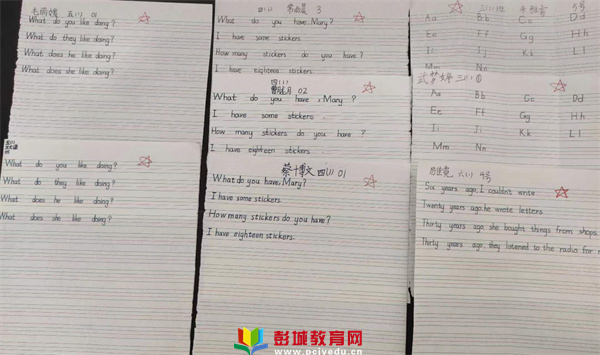 五(1) 01
What do you like doing?
What do they like doing?
What does he like doing?
What does she like doing?
What do you like doing?
What do they like doing?
What does he like doing?
What does she like doing?
四(1) 3
What do you have, Mary?
I have some stickers
How many stickers do you have?
I have eighteen stickers.
四(1)
月 02
What do you have, Mary?
I have some stickers.
How many stickers do you have?
I have eighteen stickers.
蔡博文 四(1) 01
What do you have, Mary?
I have some stickers.
How many stickers do you have?
I have eighteen stickers.
5号
Aa Bb Cc Dd
Ee Ff Gg Hh
Ii Jj Kk Ll
Mm Nn
武梦婷 三(1)
Aa Bb Cc Dd
Ee Ff Gg Hh
Ii Jj Kk Ll
Mm Nn
六(1) 4号
Six years ago, I couldn't write
Twenty years ago, he wrote letters
Thirty years ago she bought things from shops
Thirty years ago, they listened to the radio for
彭城教育网
www.pcjyedu.cn